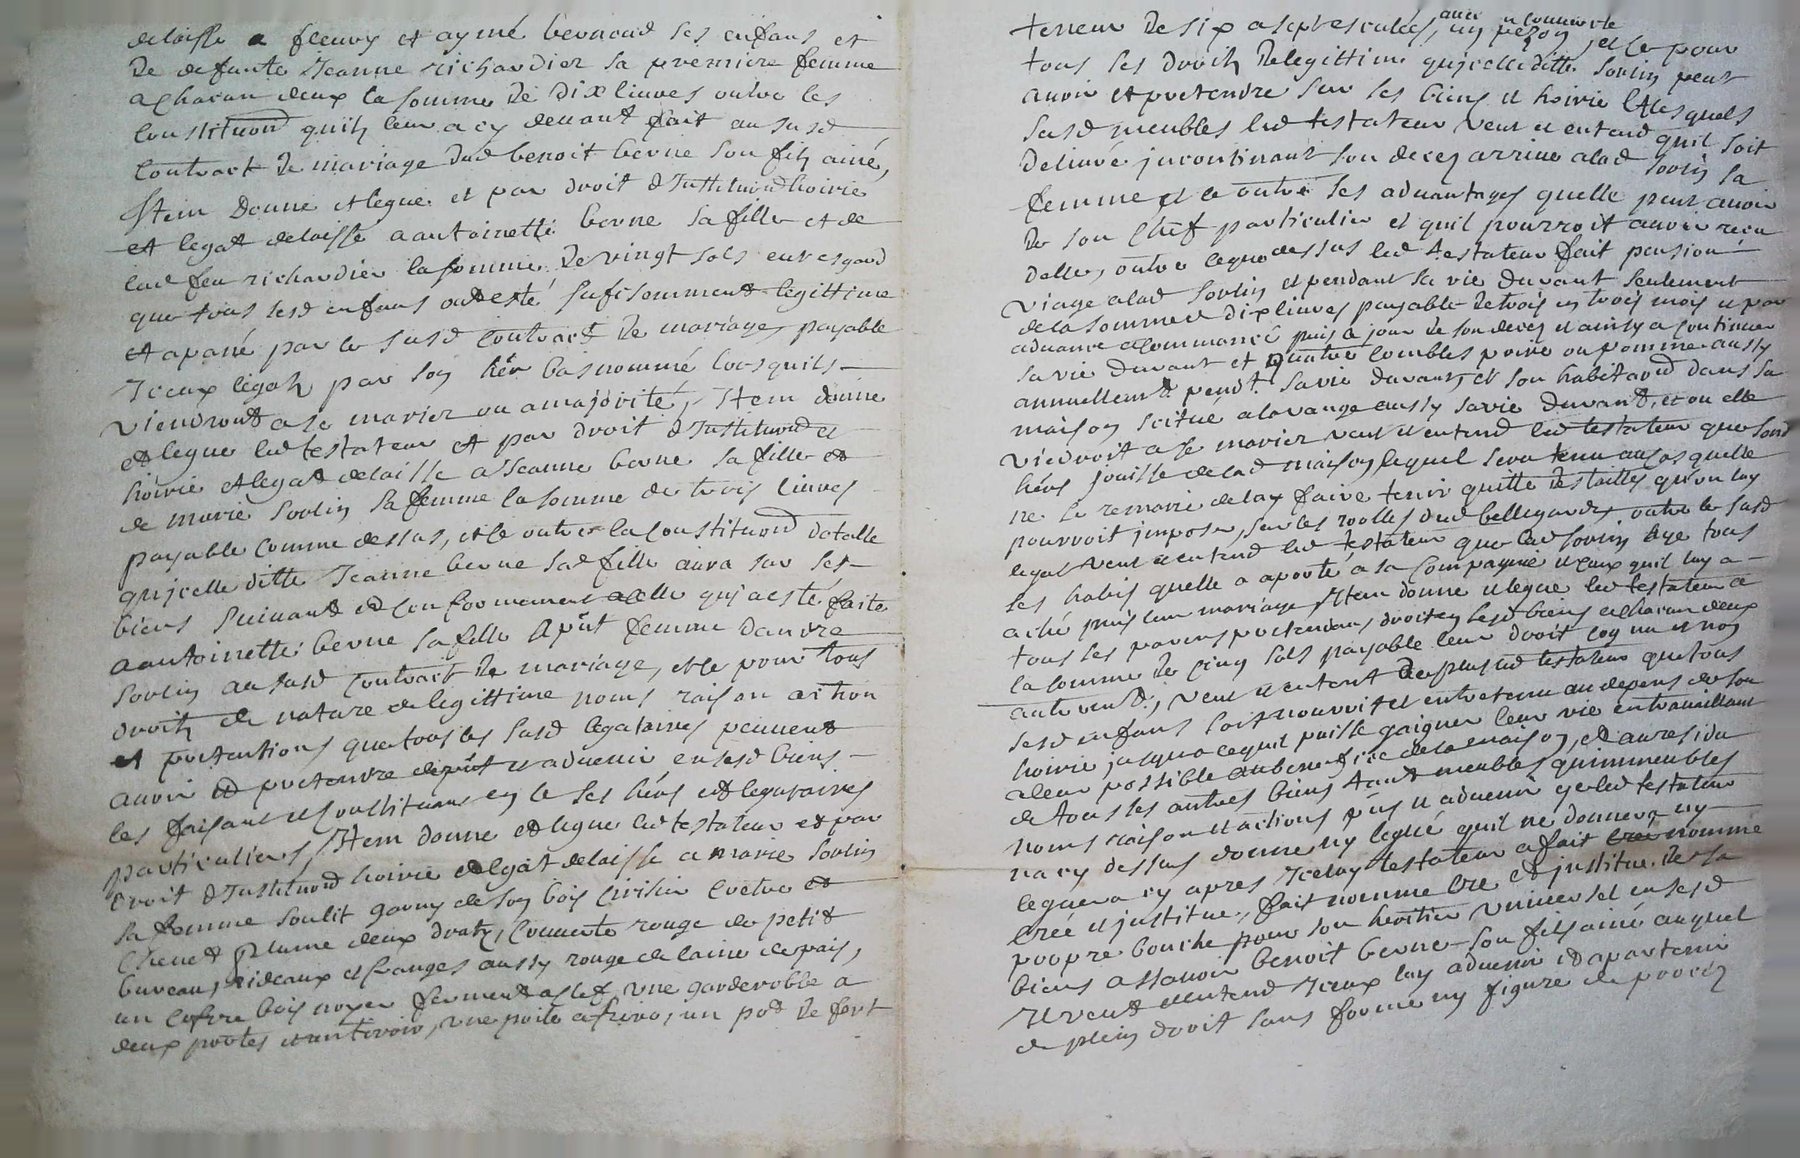 delaisse a fleury et aymé bernard ses enfans et
de defunte Jeanne richardier sa premiere femme
a chacun deux la somme de dix livres outre les
Constituond quils leur a cy devant fait au susd
Contract de mariage dud benoit berne son fils ainé,
Item Donne et legue et par droit d'Instituond hoirie
et legat delaisse a antoinette berne sa fille et de
lad feu richardier la somme de vingt sols en esgard
que tous sesd enfans ont esté sufisamment legittime
et apané par le susd Contract de mariage, payable
Iceux legats par son her bas nommé lorsquils
viendront a se marier ou a majorité, Item donne
et legue led testateur et par droit d'Instituond et
hoirie et legat delaisse a Jeanne berne sa fille et
de marie Sorlin sa femme la somme de trois livres
payable comme dessus, et ce outre la Constituond dotalle
qu'jcelle ditte Jeanne berne sad fille aura sur ses
biens Suivant et conformement a celle qui a esté faite
a antoinette berne sa fille a pnt femme dandre
Sorlin au susd Contract de mariage, et ce pour tous
droits de nature de legittime noms raison action
et pretentions que tous les susd legataires peuvent
avoir et pretendre de pnt et advenir en sesd biens
les faisant et Constituans en ce ses hers et legataires
particuliers, Item donne et legue led testateur et par
droit d'Instituond hoirie et legat delaisse a marie Sorlin
sa femme son lit garny de son bois
plume deux dratz, couverte rouge de petit
bureau, rideaux et franges aussy rouge de laine de pais,
un cofre bois noyer fermant a clef, une garderobbe a
deux portes et un tiroir, une poile a friro, un pot de fert
teneur de six a sept esculées, avec sa couverte
un pezon, et ce pour
tous ses droits de legittime qu'jcelle ditte Sorlin peut
avoir et pretendre sur ses biens et hoirie Lesquels
susd meubles led testateur veut et entend quil soit
delivré jncontinant son deces arrivé a lad Sorlin sa
femme et ce outre les advantages quelle peut avoir
de son Chef particulier et quil pourroit avoir recu
delle, outre le que dessus led testateur fait pension
viagé a lad Sorlin et pendant sa vie durant seulement
de la somme de dix livres payable de trois en trois mois et par
advance a commancé puis le jour de son deces et ainsy a continuer
sa vie durant et quatre combles poire ou pomme aussy
annuellemt pendt sa vie durant, et son habitaond dans sa
maison scitue a lavange aussy sa vie durant, et ou elle
viedroit a se marier veut et entend led testateur que sond
hers jouisse de lad maison lequel sera tenu au cas quelle
ne se remarie de la faire tenir quitte des tailles quon luy
pourroit jmposer sur les roolles dud bellegarde, outre le susd
legat veut et entend led testateur que lad Sorlin aye tous
ses habis quelle a aporté a sa Compagnie et ceux quil luy a
acheté puis leur mariage, Item donne et legue led testateur a
tous ses parens pretendans droit en sesd biens a chacun deux
la somme de cinq sols payable leur droit cognu et non
autrement, veut et entend de plus led testateur que tous
sesd enfans soit nourrit et entretenu au depens de son
hoirie jusqua ce quil puisse gaigner leur vie en travaillant
a leur possible au benefice de la maison, et au residu
de tous les autres biens tant meubles qu'immeubles
noms raison et actions pns et advenir que led testateur
na cy dessus donné ny legué quil ne donnera ny
leguera cy apres Iceluy testateur a fait nomme
Créé et justitue, fait nomme Cre et justitue de sa
propre bouche pour son heritier universel en sesd
biens assavoir benoit berne son fils ainé auquel
Il veut et entend Iceux luy advenir et apartenir
de plein droit sans forme ny figure de procez